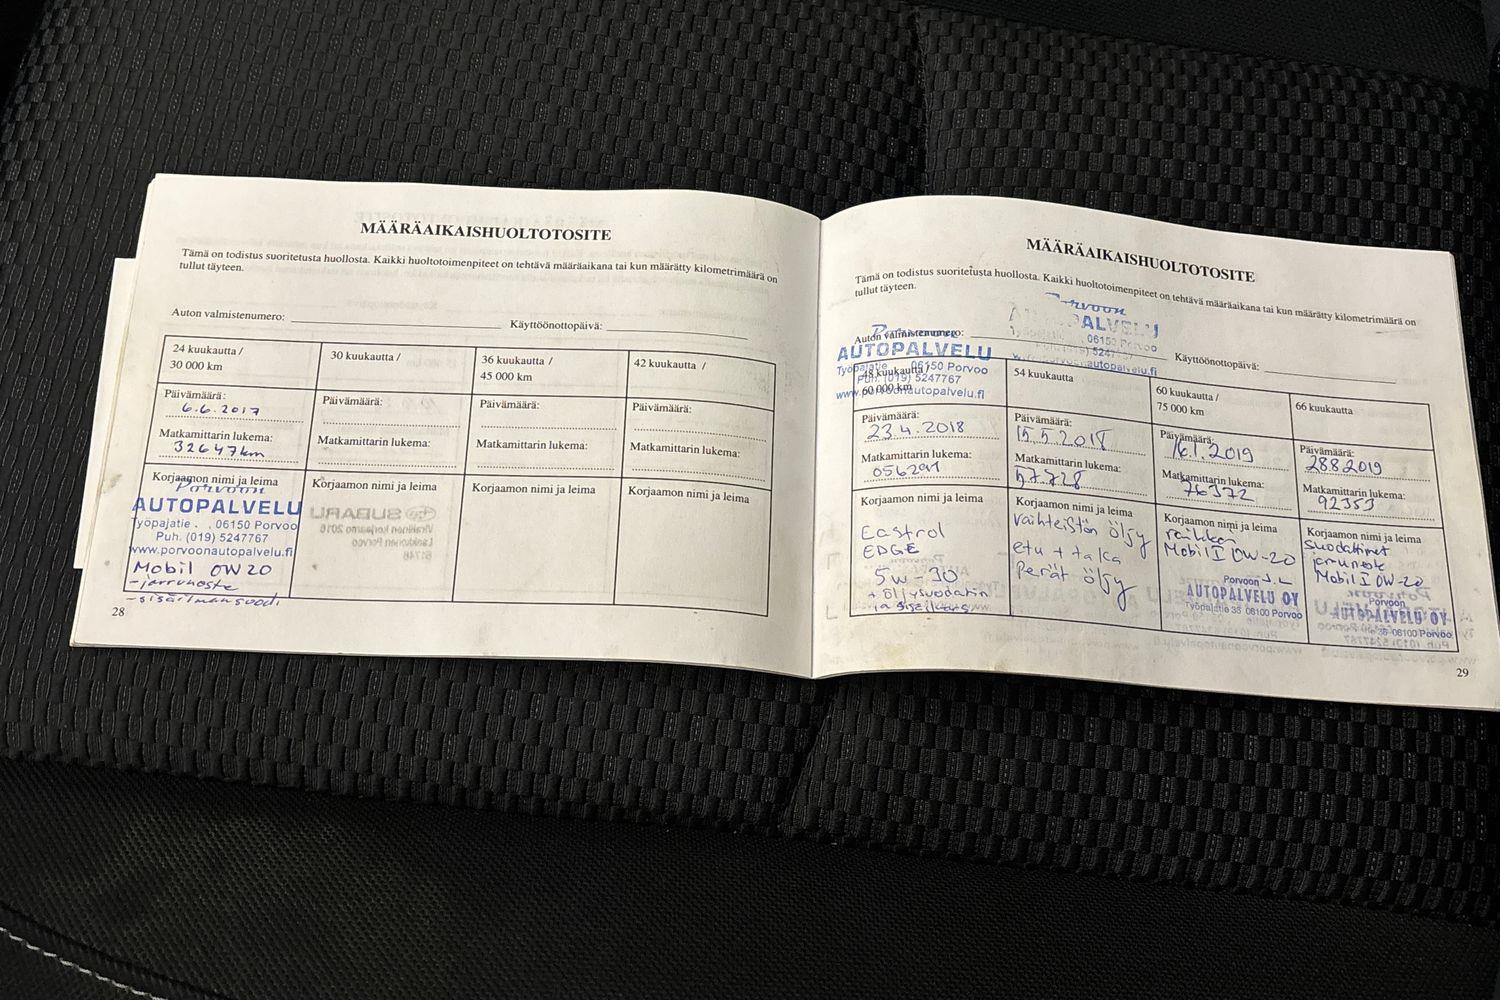 MÄÄRÄAIKAISHUOLTOTOSITE
Tämä on todistus suoritetusta huollosta. Kaikki huoltotoimenpiteet on tehtävä määräaikana tai kun määrätty kilometrimäärä on
tullut täyteen.
Auton valmistenumero:
Käyttöönottopäivä:
24 kuukautta /
30 000 km
Päivämäärä:
6.6.2017
Matkamittarin lukema:
32647km
Korjaamon nimi ja leima
Porvoon
AUTOPALVELU
Työpajatie . . 06150 Porvoo
Puh. (019) 5247767
www.porvoonautopalvelu.fi
Mobil 0W20
-jarruneste
-sisäilmansuod.
30 kuukautta /
Päivämäärä:
Matkamittarin lukema:
Korjaamon nimi ja leima
36 kuukautta /
45 000 km
Päivämäärä:
Matkamittarin lukema:
Korjaamon nimi ja leima
42 kuukautta /
Päivämäärä:
Matkamittarin lukema:
Korjaamon nimi ja leima
28
MÄÄRÄAIKAISHUOLTOTOSITE
Tämä on todistus suoritetusta huollosta. Kaikki huoltotoimenpiteet on tehtävä määräaikana tai kun määrätty kilometrimäärä on
tullut täyteen.
Porvoon
PALVELU
06150 Porvoo
Auton valmistenumero:
Käyttöönottopäivä:
AUTOPALVELU
Työpajatie 06150 Porvoo
Puh. (019) 5247767
www.porvoonautopalvelu.fi
48 kuukautta /
60 000 km
Päivämäärä:
23.4.2018
Matkamittarin lukema:
056291
Korjaamon nimi ja leima
Castrol
EDGE
5W-30
+ öljysuodatin
54 kuukautta
Päivämäärä:
15.5.2018
Matkamittarin lukema:
57.728
Korjaamon nimi ja leima
vaihteistön öljy
etu + taka
perät öljy
60 kuukautta /
75 000 km
Päivämäärä:
16.1.2019
Matkamittarin lukema:
76372
Korjaamon nimi ja leima
Mobil I 0W-20
Porvoon
AUTOPALVELU OY
Työpajatie 35 06100 Porvoo
66 kuukautta
Päivämäärä:
28.8.2019
Matkamittarin lukema:
92353
Korjaamon nimi ja leima
suodattimet
jarruneste
Mobil I 0W-20
Porvoon
AUTOPALVELU OY
35 06100 Porvoo
29